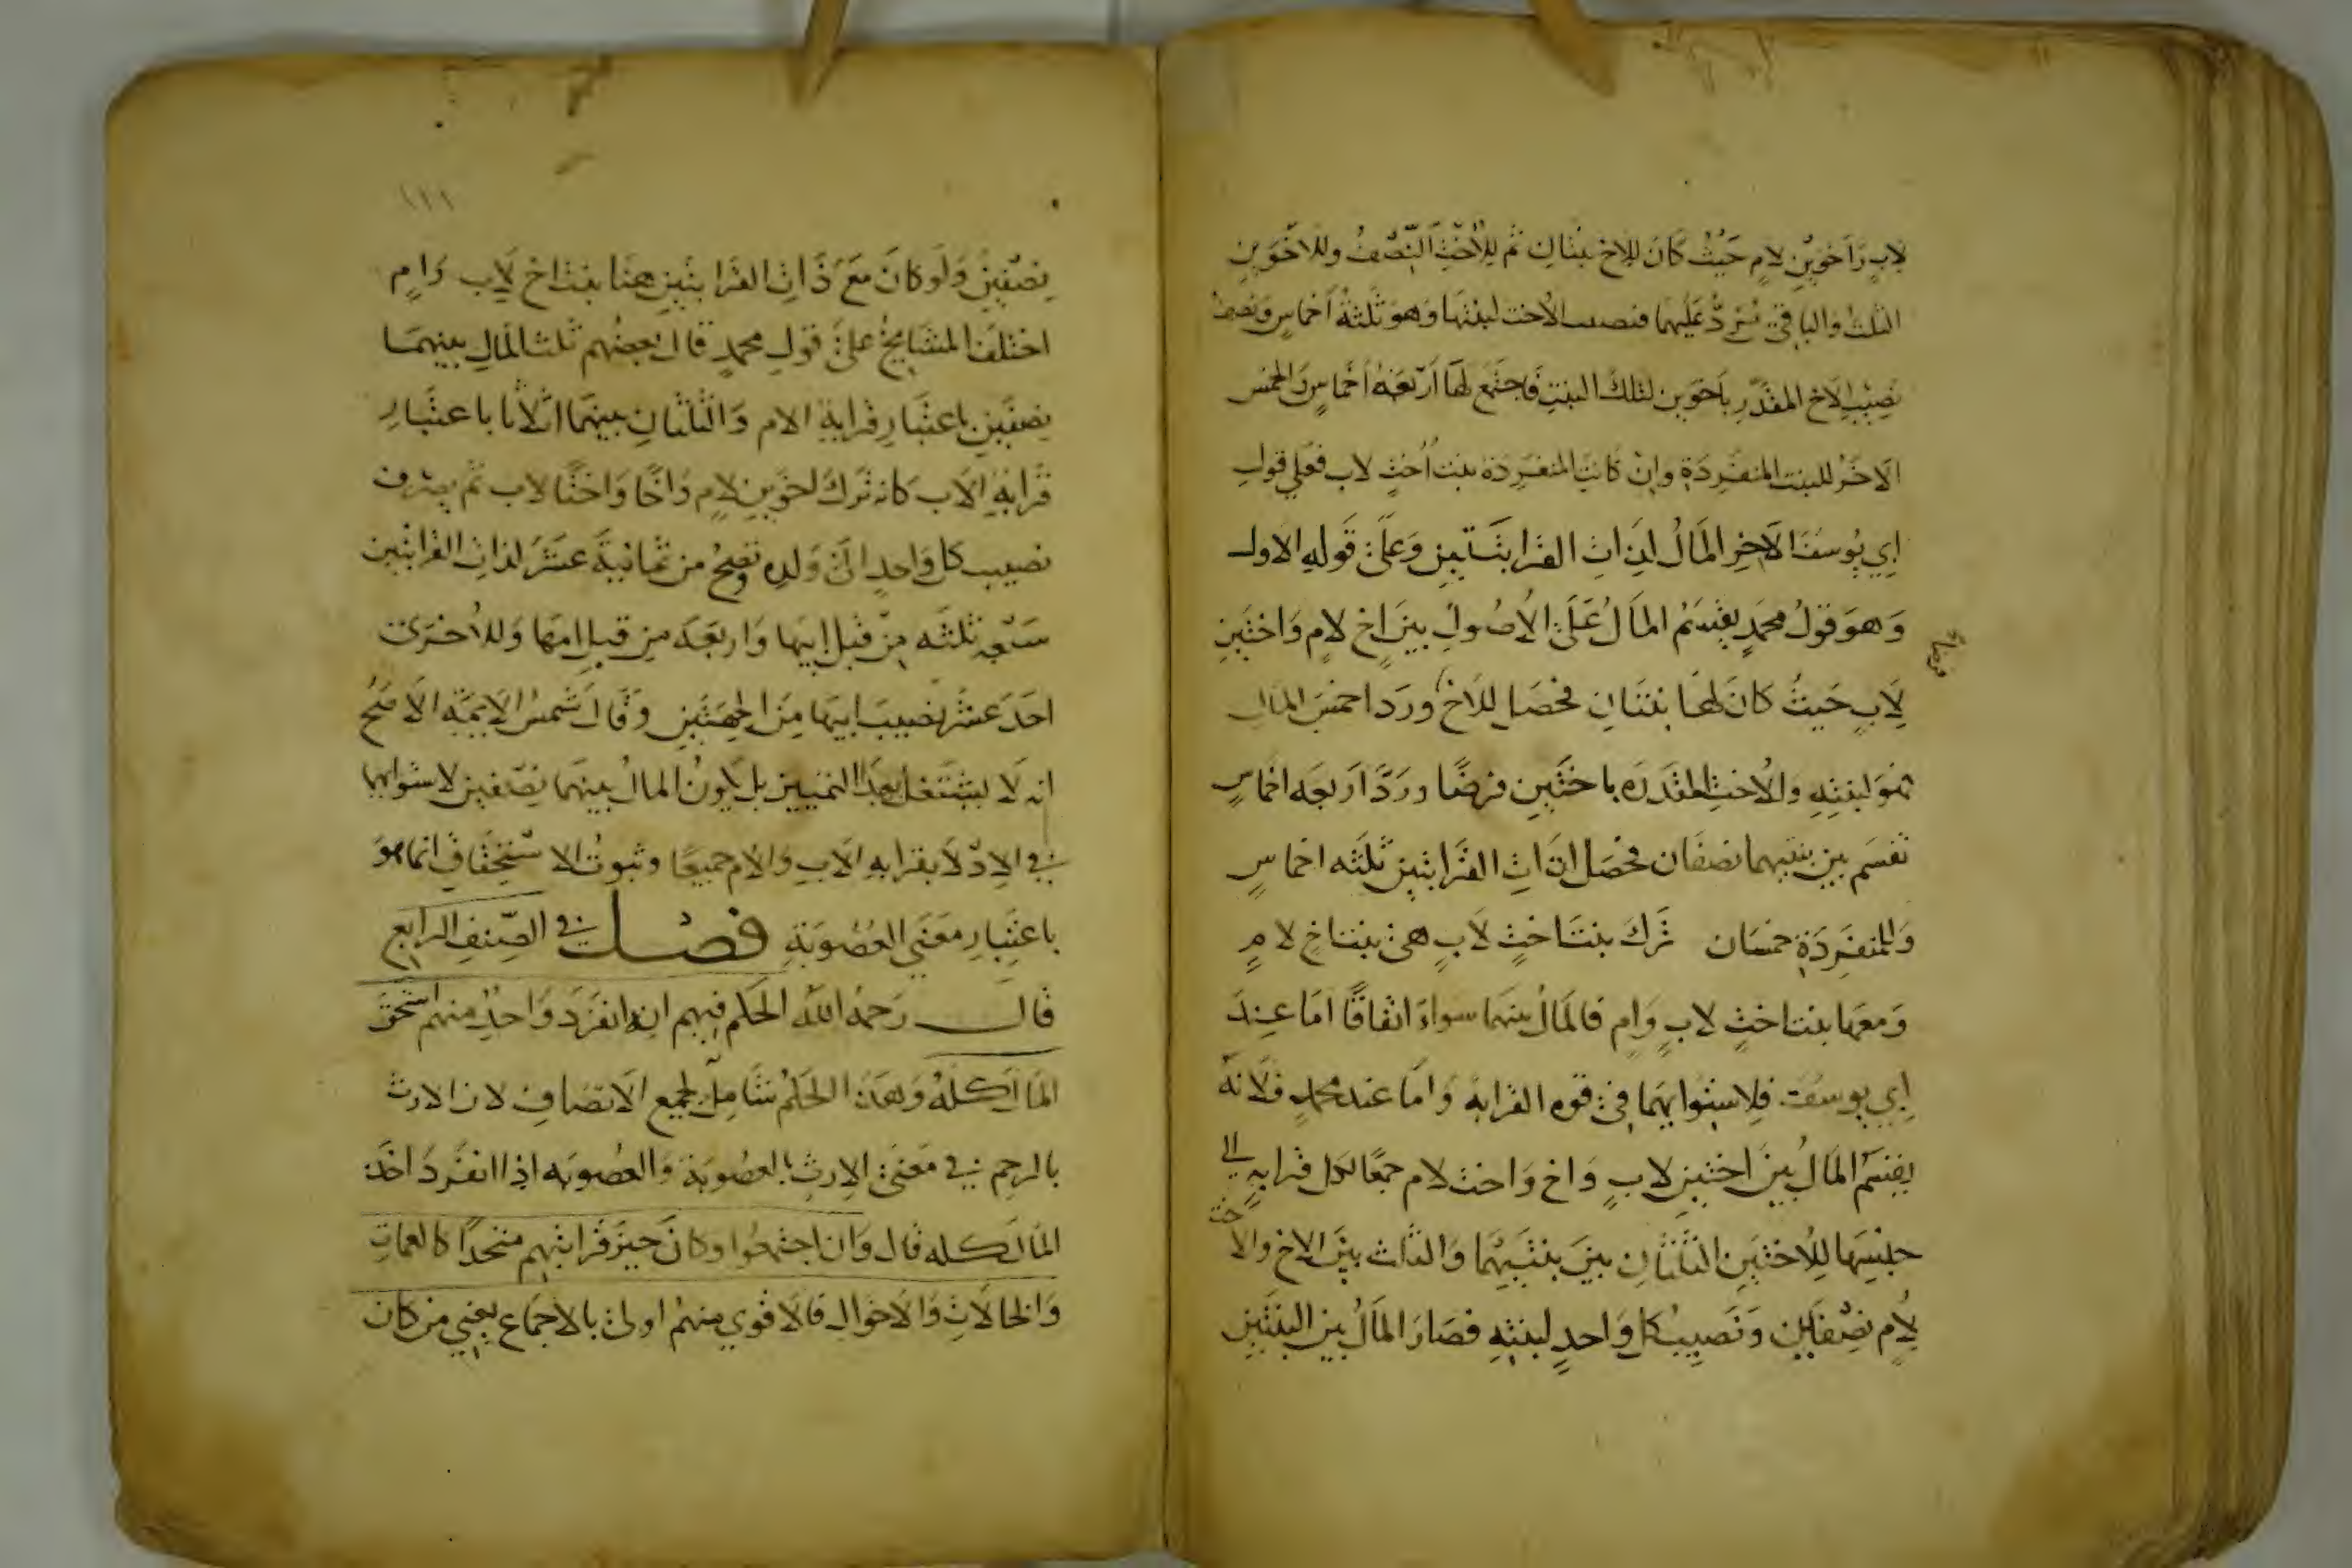 لابٍ وَاَخَوينِ لامٍ حَيْثُ كَانَ للاخ بنتان ثم للاُختِ النّصفُ وللاَخَوينِ
الثلث والباقي يُردُّ عَليهما فنصيب الاخت لبنتها وَهوَ ثلثةُ اَخماسٍ وَنصف
نصِيْبِ الاَخ المقدّرِ باَخوَين لتلكَ البنتِ فاجتمع لها اَربَعَة اَخماسٍ وَالخمس
الاَخَرُ للبنت المنفرِدَةِ وان كانتِ المنفرِدَة بنت اُختٍ لاب فعلي قولِ
ابي يُوسفَ الاَخِرِ المَالُ لذاتِ القرابتَينِ وَعَلَى قَولهِ الاول
وَهوَ قولُ محمدٍ يقسَمُ المَالُ عَلَى الاُصُولِ بينَ اخ لامٍ وَاختَينِ
لاَبٍ حَيثُ كَانَ لهَا بنتَانِ فحصَل للاَخ وردا خمسَ المَال
فهُوَ لبنتِهِ وَالاُختِ المقدَرَه باختَينِ فرضًا وردًّا اَربَعَه اخماسٍ
تقسَم بين بنتيهما نصفان فحصَل لذاتِ القرابتينِ ثلثه اخماسٍ
وَالمنفَرِدَةِ خمسَان ترك بنتَ اختٍ لابٍ هى بنت اخٍ لامٍ
وَمعَها بنت اختٍ لابٍ وَامٍ فالمَالُ بينهمَا سواءٌ اتفاقًا امَا عِندَ
ابي يوسُفَ فلاستوايهما في قوه القرابة وَامَا عند محمدٍ فلانهُ
يقسَم المَالُ بينَ اختينِ لابٍ وَاخ وَاخت لام جمعًا لكل قرابةٍ الى
جنسِهَا للاُختَينِ الثلثانِ بينَ بنتَيهُمَا وَالثلث بينَ الاخ والاخت
لاُمٍ نصفَين وَنَصِيبُ كل وَاحدٍ لبنتِهِ فصَارَ المَالُ بين البنتَينِ
فرضًا
١٢١
نصفَينِ وَلَو كانَ معَ ذَاتِ القرابتَينِ هنَا بنت اخ لاَبٍ وَامٍ
اختلفَ المشَايخُ علَى قولِ محمدٍ قال بعضُهم ثلث المَالِ بينهمَا
نصفَينِ باعتبَارِ قرابةِ الام وَالثلثانِ بينهمَا اثلاثا باعتبَارِ
قرابةِ الاَب كانه تركَ اخوَينِ لامٍ وَاخًا وَاختًا لاب ثم يصرف
نصيب كل وَاحدٍ الى وَلده وتصِحُ من ثمانيَةَ عَشَرَ لذاتِ القرابتين
سَبعه ثلثَه مِن قبل ابيها وَاربعَه مِن قبلِ امهَا وَللاُخرَى
احَدَ عشرَ نصيبَ ابيهَا مِنَ الجهتَينِ وقالَ شمسُ الايمّه الاَصَحُ
انه لَا يشتغل بهذا التمييز بل يكونُ المالُ بينهمَا نصفين لاستوايهما
في الادلاَ بقرابهِ الاَبِ وَالاُم جميعًا وثبوتُ الاستحقاق انما هوَ
باعتِبارِ معَنَى العُصُوبَةِ فصــل في الصِّنفِ الرابعِ
قال رَحمهُ اللهُ الحكم فيهم انه اذا انفَرَدَ وَاحدٌ منهم استَحقَ
المَال كلهُ وَهذا الحكمُ شامِلٌ لجميع الاَصنافِ لان الارث
بالرحِم في مَعنَى الاِرثِ بالعصُوبَةِ وَالعصُوبَه اذا انفَردَ اخذ
المَال كله قال وَان اجتمعُوا وكانَ حيزُ قرابتِهم متحدًا كالعماتِ
وَالخالاَتِ وَالاَخوالِ فالاَقوي منهمُ اولى بالاجماع يعني من كان